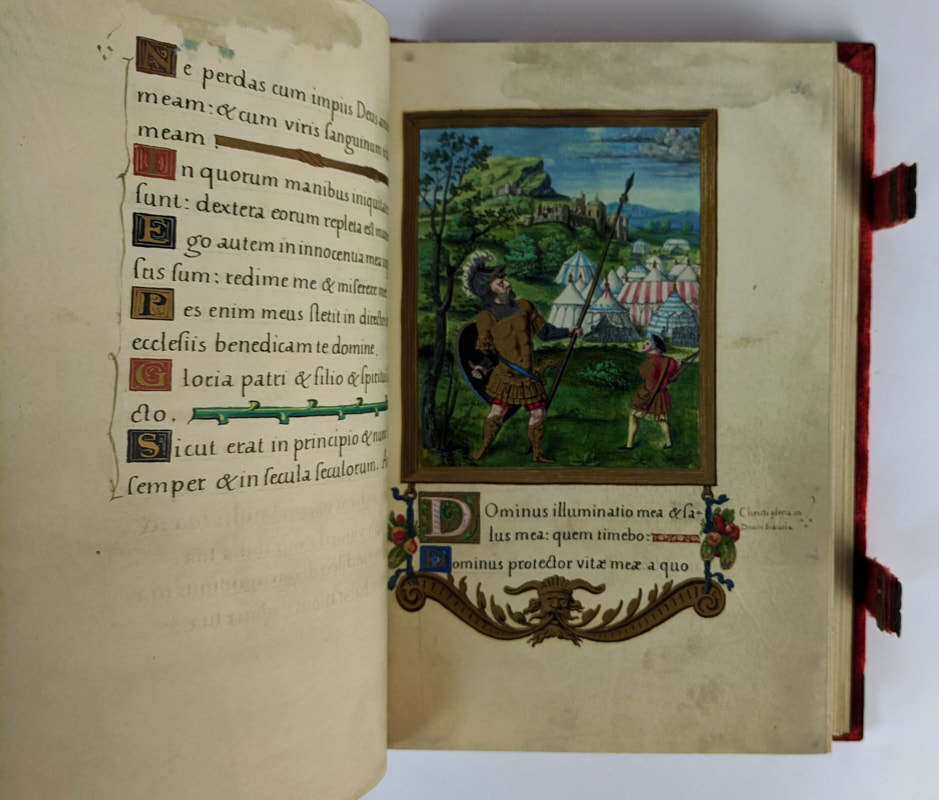 Ne perdas cum impiis Deus
meam: & cum viris ſanguinum
meam
In quorum manibus
ſunt: dextera eorum repleta eſt
Ego autem in innocentia mea
ſus ſum: redime me & miſerere
Pes enim meus ſtetit in directo
eccleſiis benedicam te domine.
Gloria patri & filio & ſpiritui
cto.
Sicut erat in principio & nunc
ſemper & in ſecula ſeculorum. A
DOminus illuminatio mea & ſa-
lus mea: quem timebo:
Dominus protector vitæ meæ a quo
Chriſti plena in